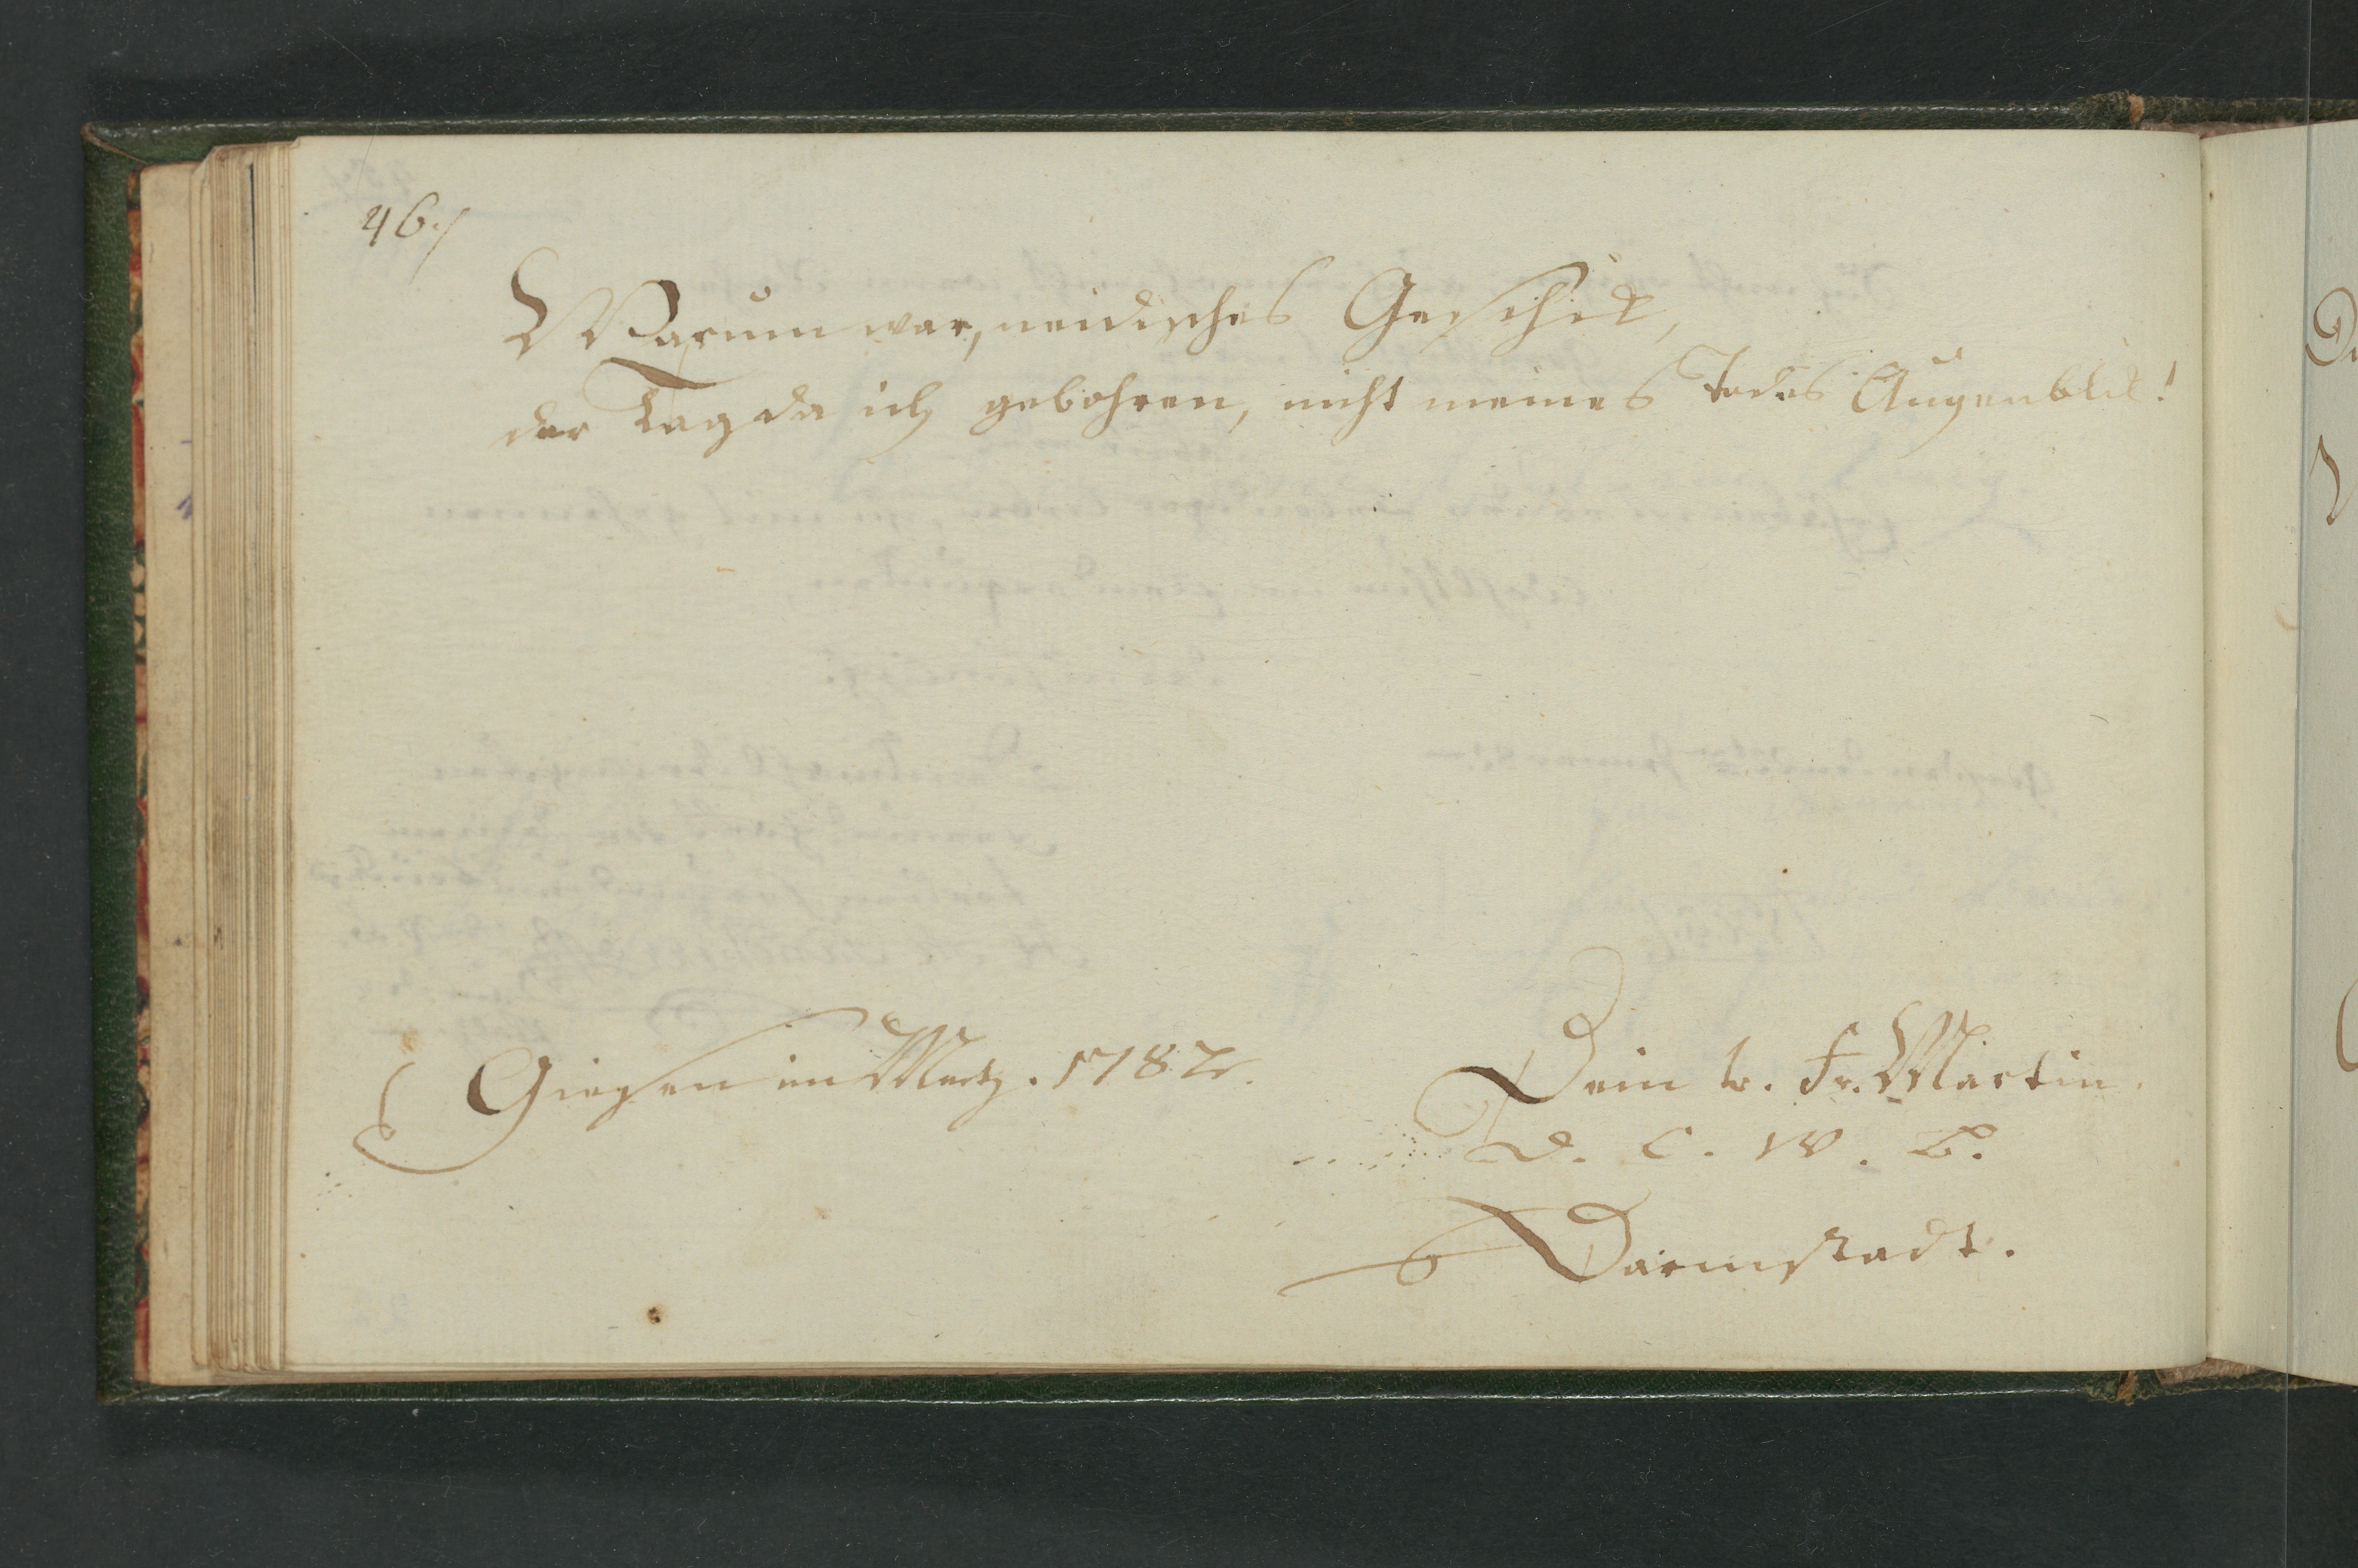 46./
Warum war, neidisches Geschik,
der Tag da ich gebohren, nicht meines Todes Augenblik!
Giesen im Mertz. 1782.
Dein tr. Fr. Martin.
d. C. W. B.
Darmstadt.